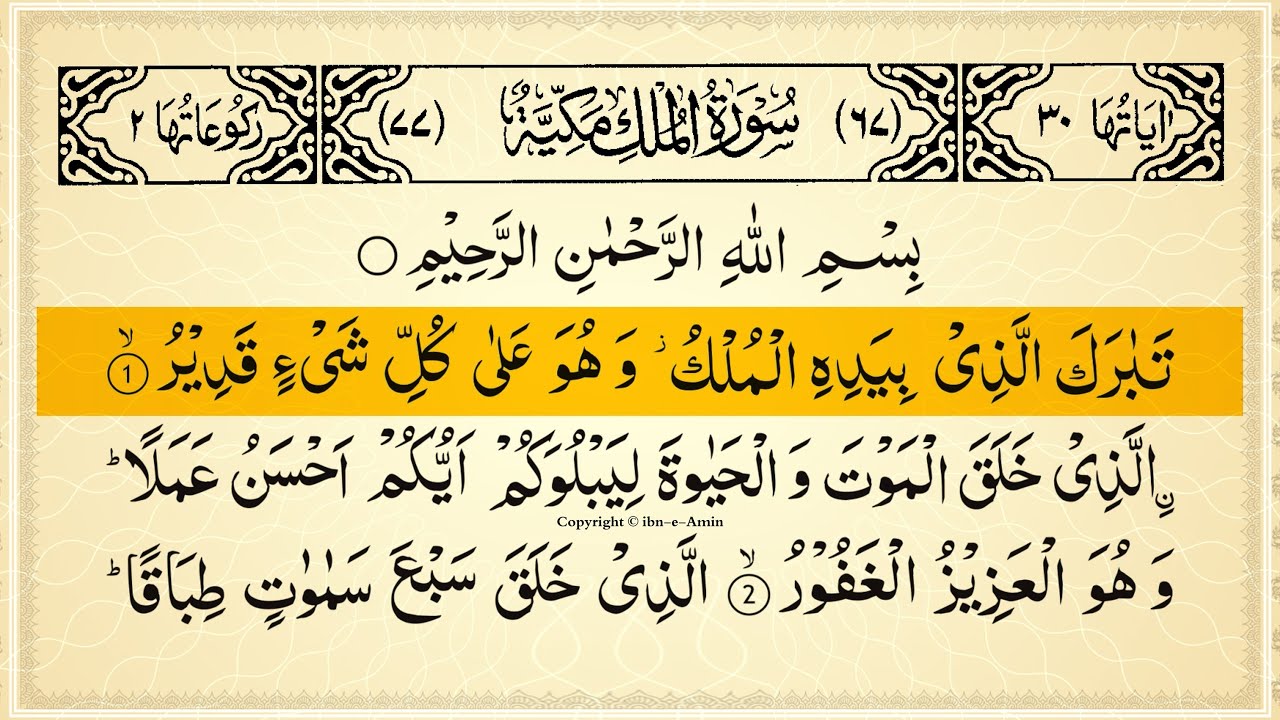 اٰيَاتُهَا ٣٠ (٦٧) سُوْرَةُ الْمُلْكِ مَكِّيَّةٌ (٧٧) رُكُوْعَاتُهَا ٢
بِسْمِ اللّٰهِ الرَّحْمٰنِ الرَّحِيْمِ ○
تَبٰرَكَ الَّذِیْ بِيَدِهِ الْمُلْكُ ؗ وَ هُوَ عَلٰی كُلِّ شَیْءٍ قَدِيْرُ ۙ ①
ۨالَّذِیْ خَلَقَ الْمَوْتَ وَ الْحَيٰوةَ لِيَبْلُوَكُمْ اَيُّكُمْ اَحْسَنُ عَمَلًا ؕ
Copyright © ibn-e-Amin
وَ هُوَ الْعَزِيْزُ الْغَفُوْرُ ۙ ② الَّذِیْ خَلَقَ سَبْعَ سَمٰوٰتٍ طِبَاقًا ؕ